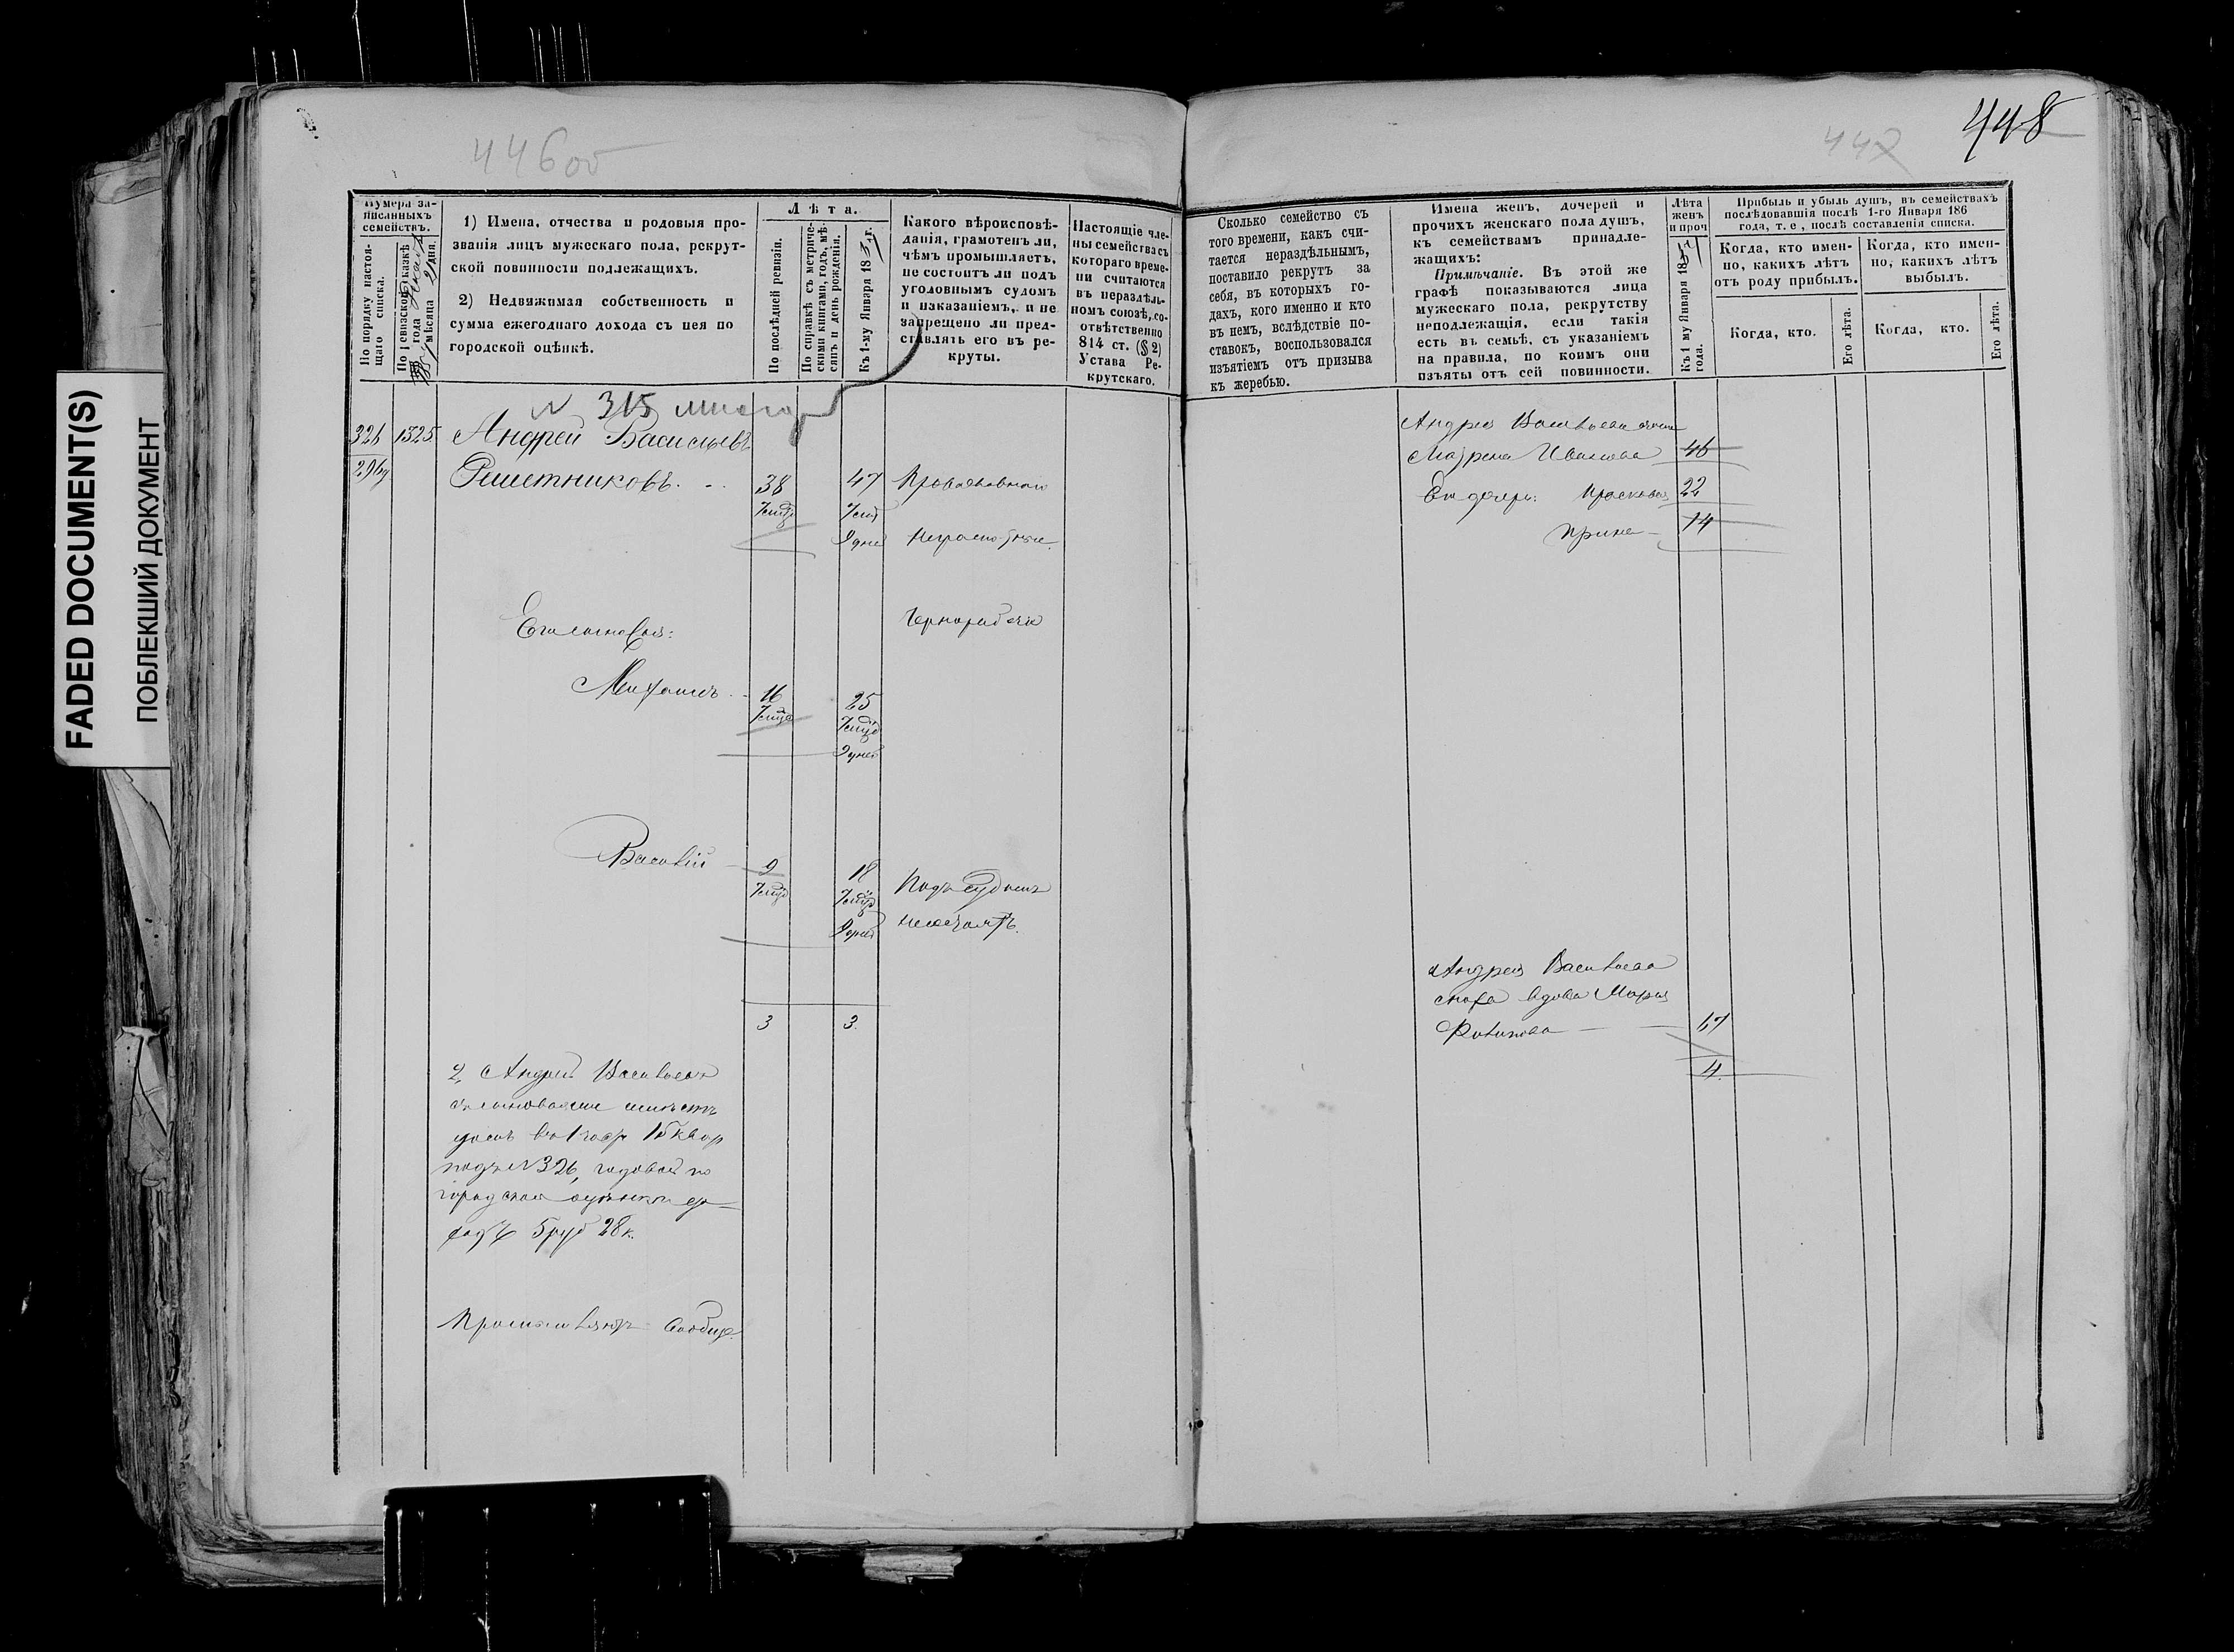 FADED DOCUMENT(S)
ПОБЛЕКШИЙ ДОКУМЕНТ
446 об
Нумера за-
писанныхъ
семействъ.
По порядку настоя-
щаго списка.
По ревизской сказкѣ
года
мѣсяца 21 дня.
1) Имена, отчества и родовыя про-
званія лицъ мужескаго пола, рекрут-
ской повинности подлежащихъ.
2) Недвижимая собственность и
сумма ежегоднаго дохода съ нея по
городской оцѣнкѣ.
Лѣта.
По послѣдней ревизіи.
По справкѣ съ метриче-
скими книгами, годъ, мѣ-
сяцъ и день рожденія.
Къ 1-му Января 18 г.
Какого вѣроисповѣ-
данія, грамотенъ ли,
чѣмъ промышляетъ,
не состоитъ ли подъ
уголовнымъ судомъ
и наказаніемъ, и не
запрещено ли пред-
ставлять его въ ре-
круты.
Настоящіе чле-
ны семейства съ
котораго време-
ни считаются
въ нераздѣль-
номъ союзѣ, со-
отвѣтственно
814 ст. (§ 2)
Устава Ре-
крутскаго.
N 315
326 1525 Андрей Васильевъ
Решетниковъ. 38 47 Православнаго
9 дней Неграмотные
Его сыновья: Чернорабочіе
Михаилъ 16 25
9 дней
Василій 9 18 Подъ судомъ
9 дней несостоятъ.
3 3.
2, Андрей Васильевъ
съ сыновьями имѣетъ
домъ во 1 част 15 квар
подъ N 326, годовой по
городской оцѣнки
5 руб 28 к.
Промышляютъ Сообща.
442
448
Сколько семейство съ
того времени, какъ счи-
тается нераздѣльнымъ,
поставило рекрутъ за
себя, въ которыхъ го-
дахъ, кого именно и кто
въ немъ, вслѣдствіе по-
ставокъ, воспользовался
изъятіемъ отъ призыва
къ жеребью.
Имена женъ, дочерей и
прочихъ женскаго пола душъ,
къ семействамъ принадле-
жащихъ:
Примѣчаніе. Въ этой же
графѣ показываются лица
мужескаго пола, рекрутству
неподлежащія, если такія
есть въ семьѣ, съ указаніемъ
на правила, по коимъ они
изъяты отъ сей повинности.
Лѣта
женъ
и проч
Къ 1 му Января 18
года.
Прибыль и убыль душъ, въ семействахъ
послѣдовавшія послѣ 1-го Января 186
года, т. е., послѣ составленія списка.
Когда, кто имен-
но, какихъ лѣтъ
отъ роду прибылъ.
Когда, кто имен-
но, какихъ лѣтъ
выбылъ.
Когда, кто.
Его лѣта.
Когда, кто.
Его лѣта.
Андрея Васильева жена
Матрена Иванова 46
Его дочери: Прасковья 22
Ирина 14
Андрея Васильева
сноха вдова Марья
67
4.